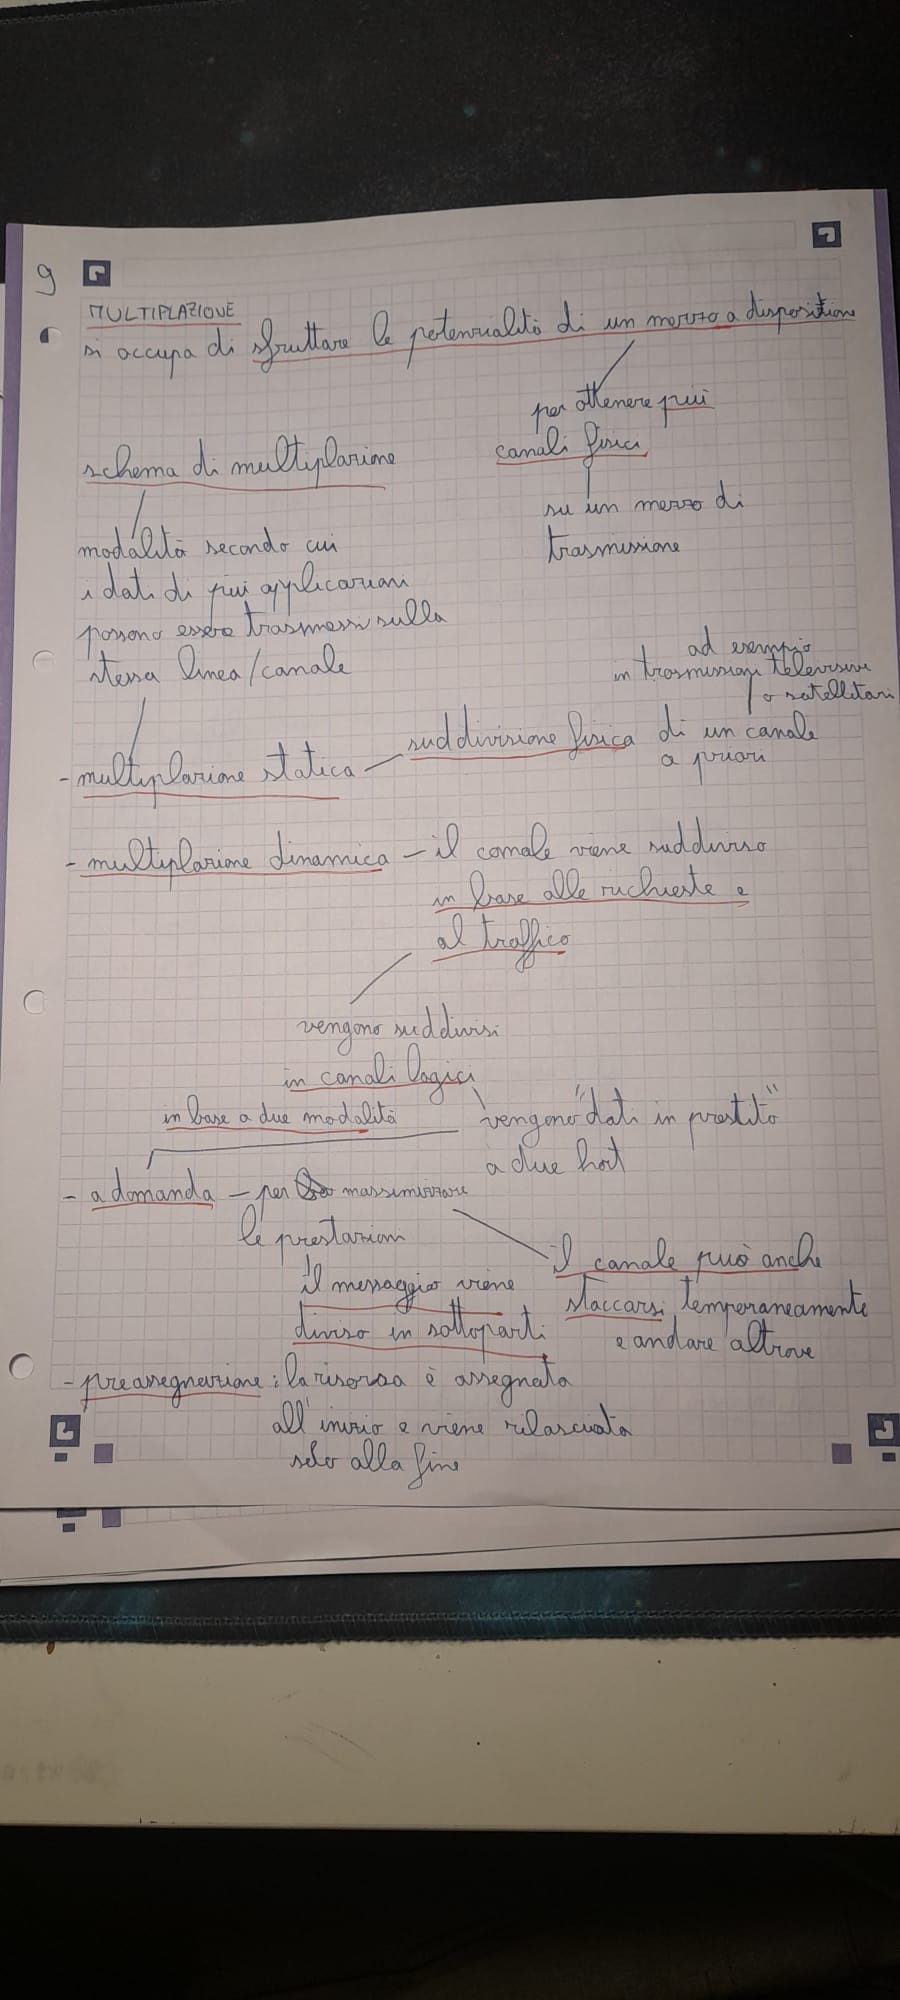 9
MULTIPLAZIONE
si occupa di sfruttare le potenzialità di un mezzo a disposizione
per ottenere più
canali fisici
su un mezzo di
trasmissione
schema di multiplazione
modalità secondo cui
i dati di più applicazioni
possono essere trasmessi sulla
stessa linea/canale
ad esempio
in trasmissioni televisive
o satellitari
- multiplazione statica - suddivisione fisica di un canale
a priori
- multiplazione dinamica - il canale viene suddiviso
in base alle richieste e
al traffico
vengono suddivisi
in canali logici
in base a due modalità
vengono "dati in prestito"
a due host
- a domanda - per massimizzare
le prestazioni
il messaggio viene
diviso in sottoparti
il canale può anche
staccarsi temporaneamente
e andare altrove
- preassegnazione: la risorsa è assegnata
all'inizio e viene rilasciata
solo alla fine